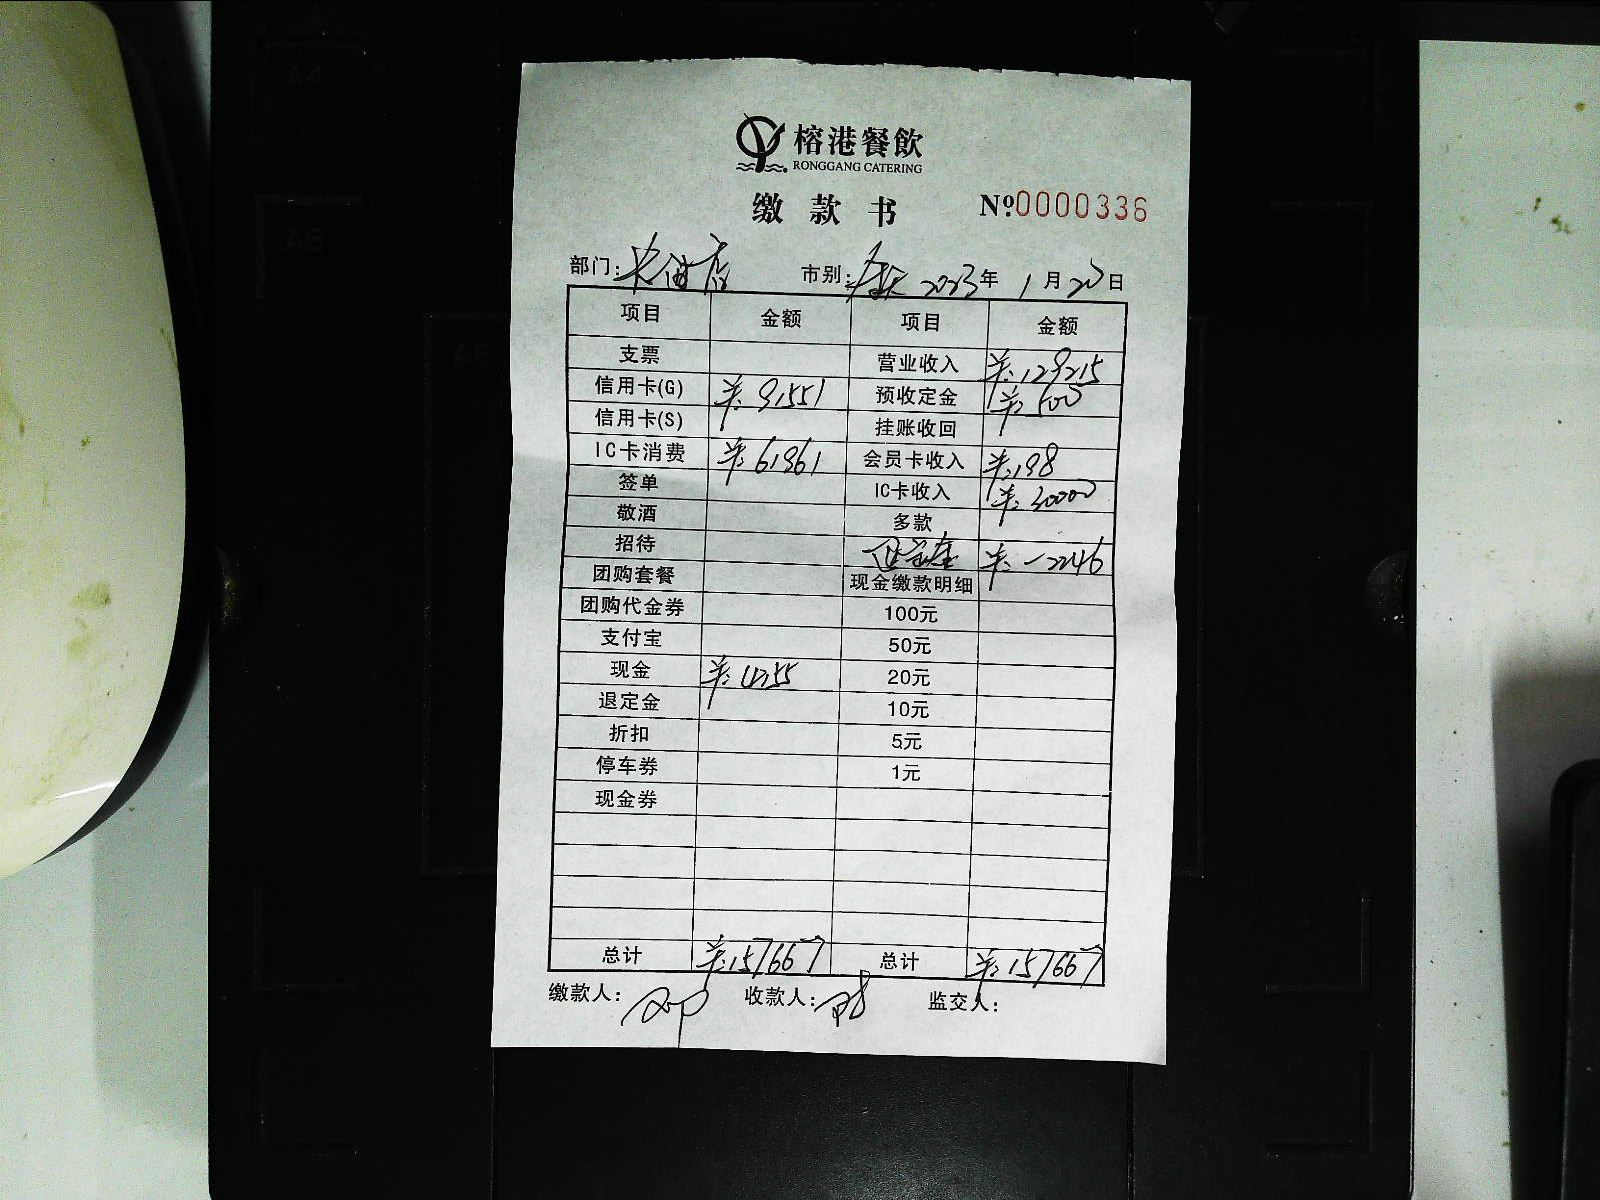 A4
A5
榕港餐飲
RONGGANG CATERING
缴款书 №0000336
部门: 店 市别: 2023年 1月20日
项目 金额 项目 金额
支票 营业收入 ¥:129215
信用卡(G) ¥:91551 预收定金 ¥:500
信用卡(S) 挂账收回
IC卡消费 ¥:61861 会员卡收入 ¥:198
签单 IC卡收入 ¥:30000
敬酒 多款
招待 退定金 ¥:-2246
团购套餐 现金缴款明细
团购代金券 100元
支付宝 50元
现金 ¥:4255 20元
退定金 10元
折扣 5元
停车券 1元
现金券
总计 ¥:157667 总计 ¥:157667
缴款人: 收款人: 监交人: